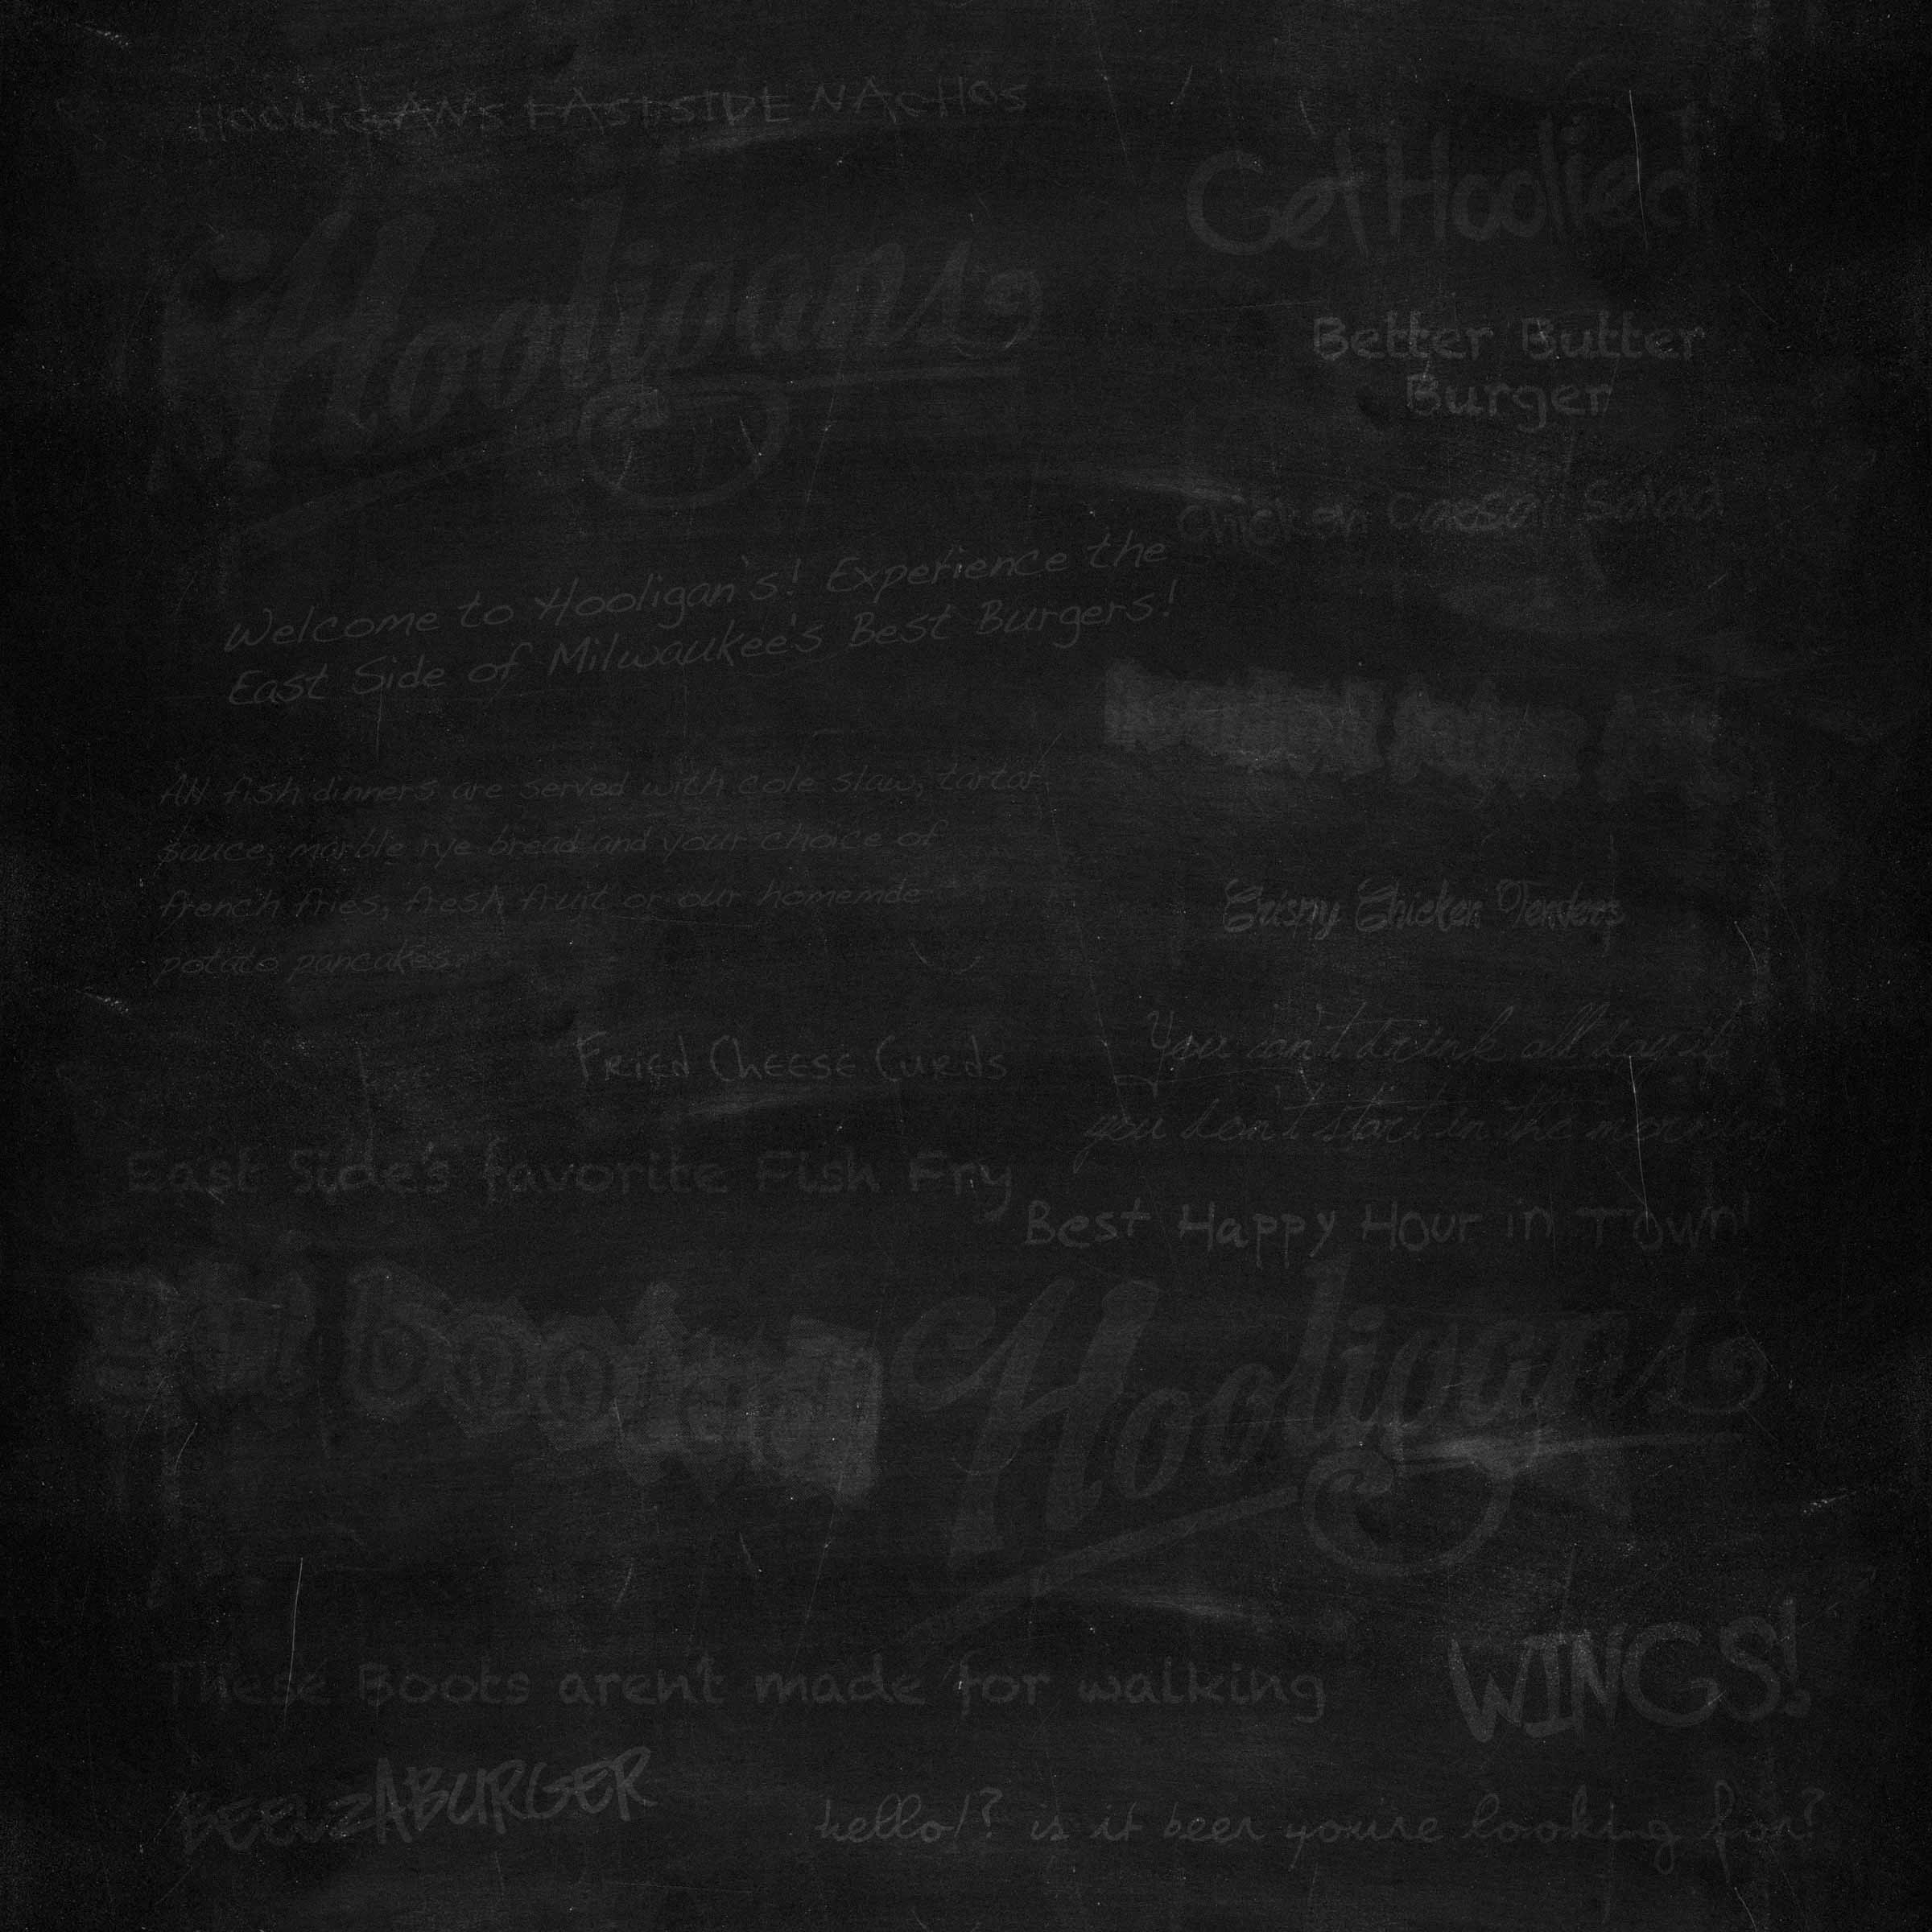 HOOLIGAN'S EASTSIDE NACHOS
Get Hoolied
Hooligans
Better Butter
Burger
Chicken Caesar Salad
Welcome to Hooligan's! Experience the
East Side of Milwaukee's Best Burgers!
All fish dinners are served with cole slaw, tartar
sauce, marble rye bread and your choice of
french fries, fresh fruit or our homemde
potato pancakes.
Crispy Chicken Tenders
Fried Cheese Curds
You can't drink all day if
you don't start in the morning
East Side's favorite Fish Fry
Best Happy Hour in Town!
Hooligans
These Boots aren't made for walking
WINGS!
BEELZABURGER
hello!? is it beer you're looking for?